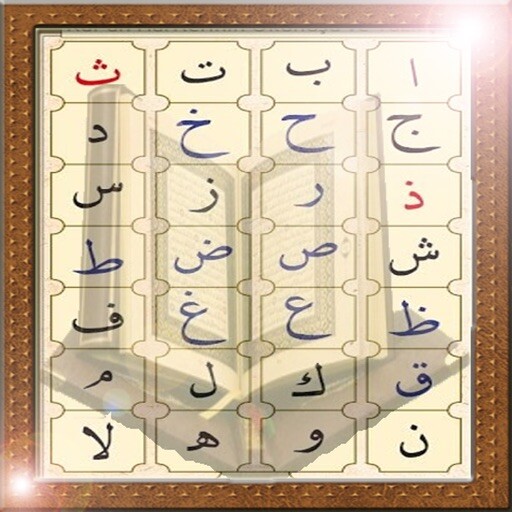 ا ب ت ث
ج ح خ د
ذ ر ز س
ش ص ض ط
ظ ع غ ف
ق ك ل م
ن و ه لا